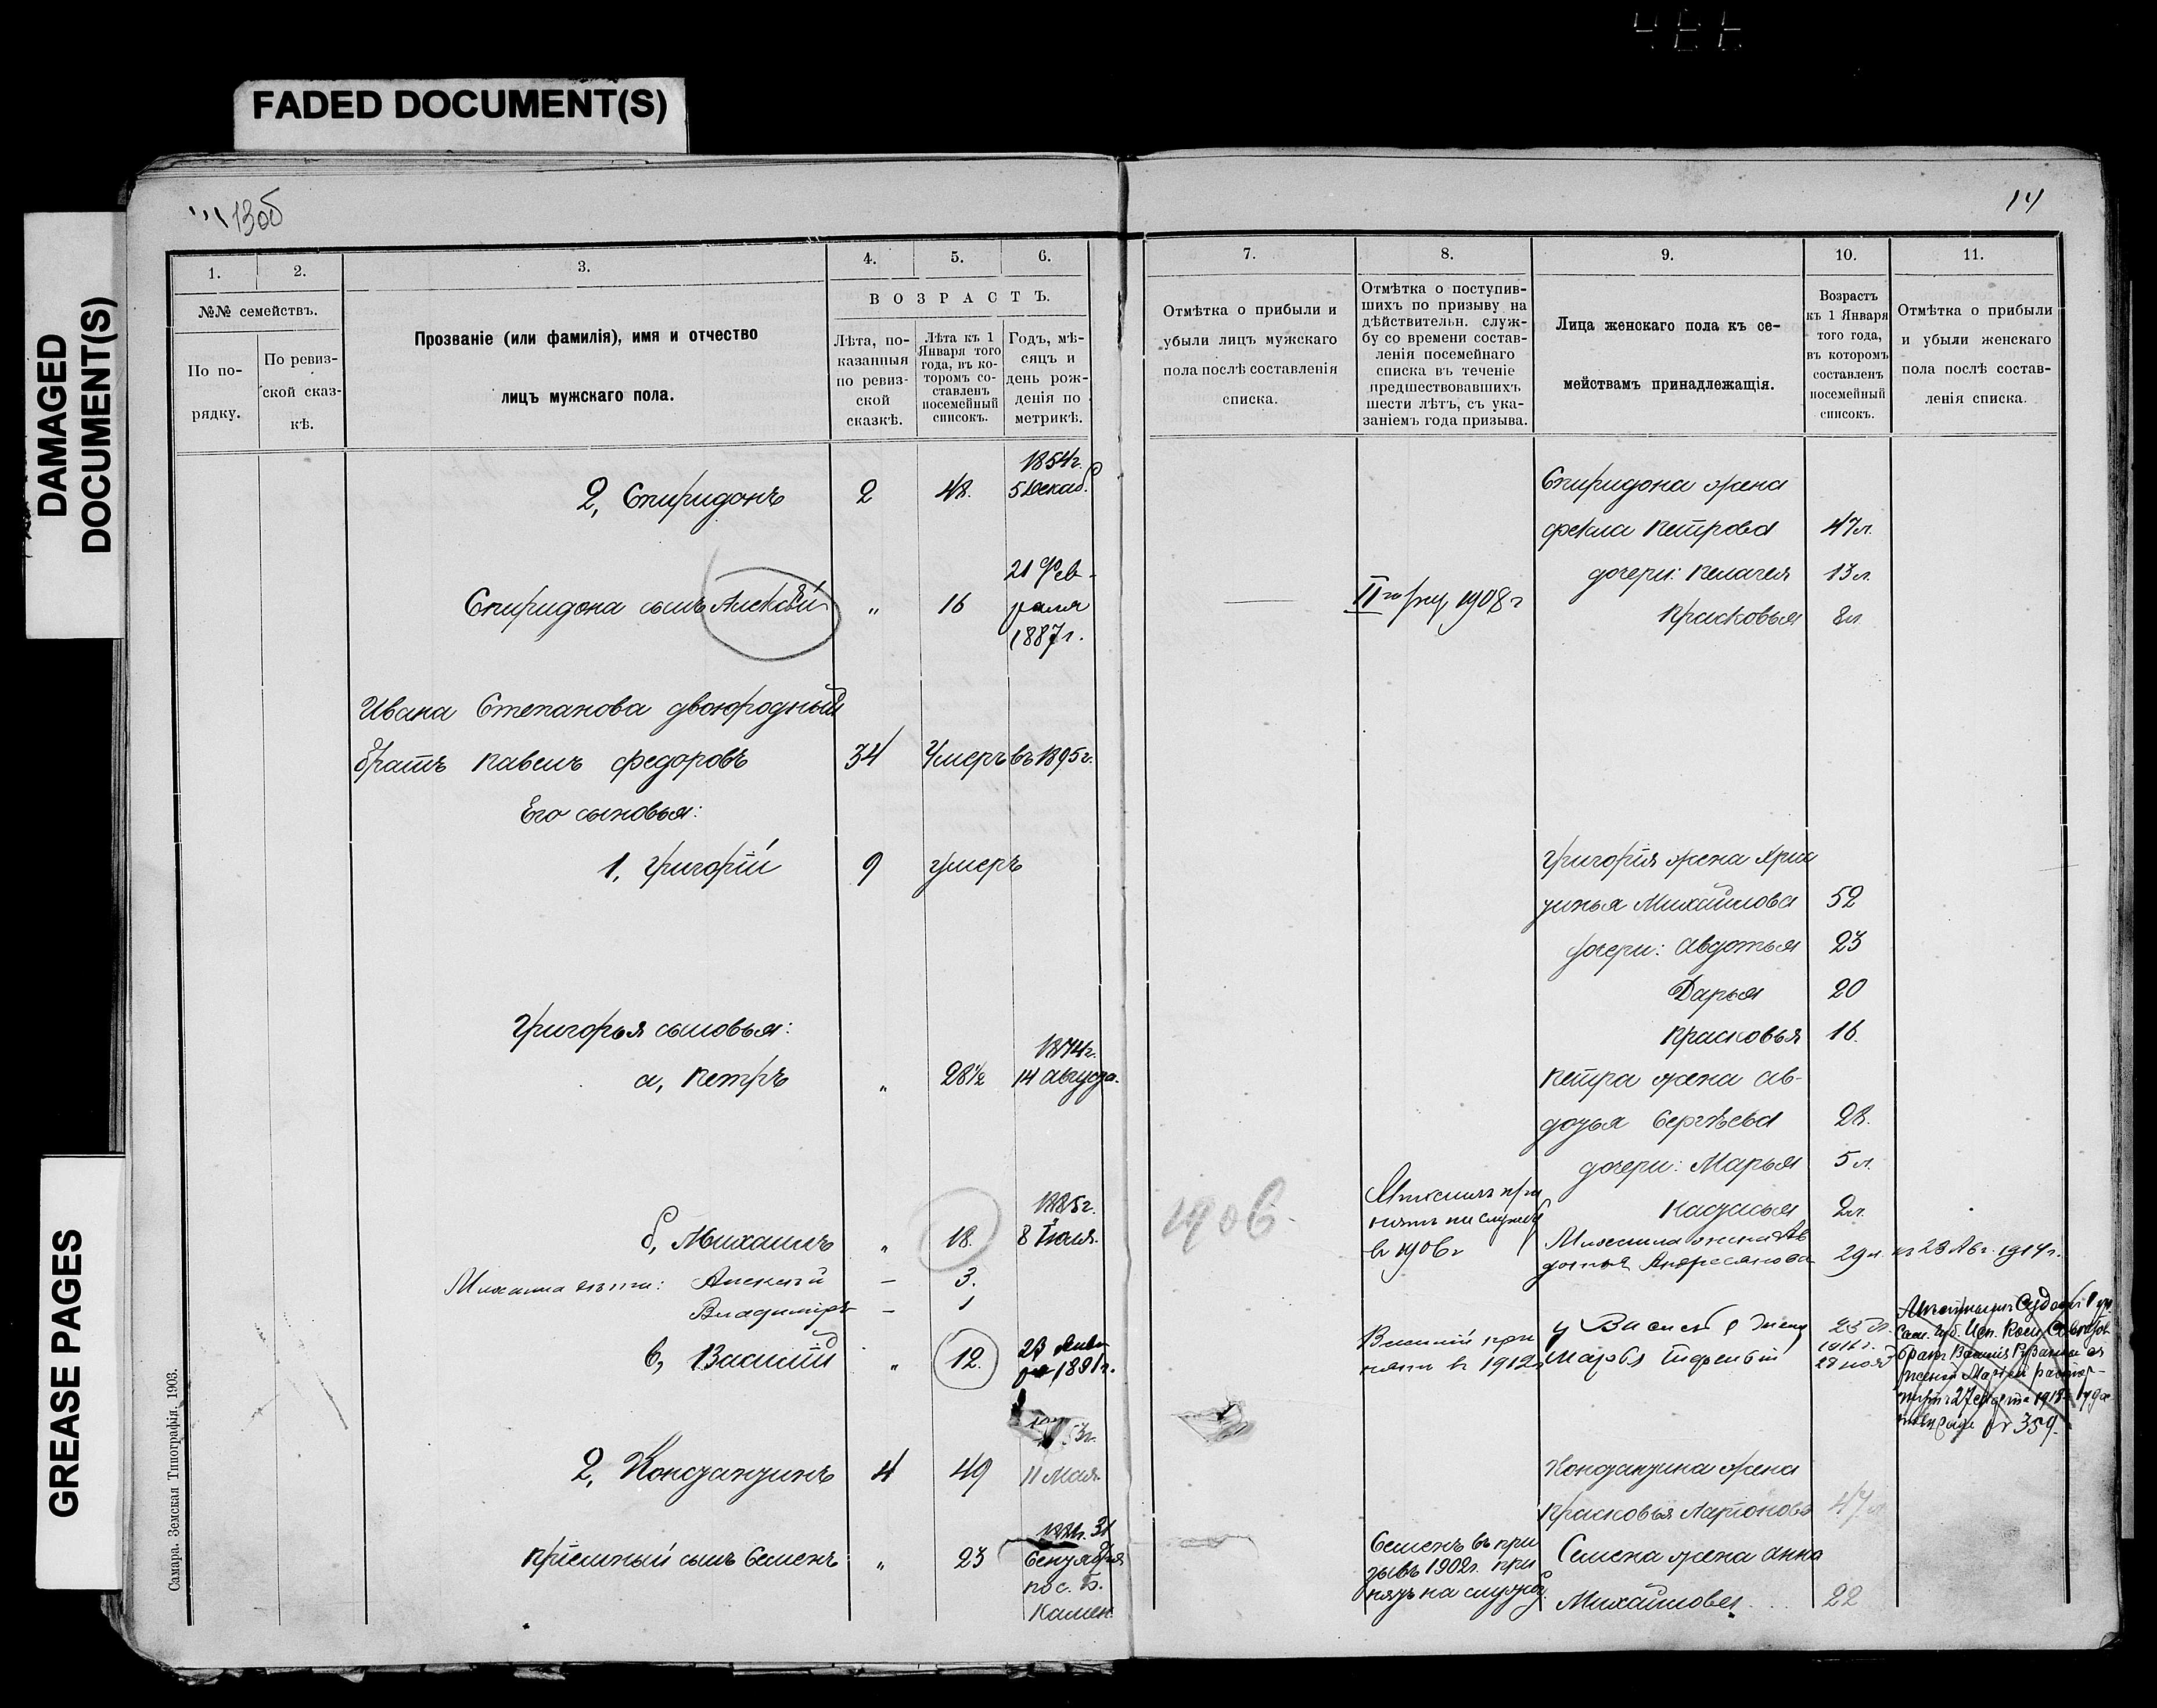 FADED DOCUMENT(S)
DAMAGED
DOCUMENT(S)
GREASE PAGES
13об
14
1.
2.
3.
4.
5.
6.
№№ семействъ.
По по-
рядку.
По ревиз-
ской сказ-
кѣ.
Прозваніе (или фамилія), имя и отчество
лицъ мужскаго пола.
ВОЗРАСТЪ.
Лѣта, по-
казанныя
по ревиз-
ской
сказкѣ.
Лѣта къ 1
Января того
года, въ ко-
торомъ со-
ставленъ
посемейный
списокъ.
Годъ, мѣ-
сяцъ и
день рож-
денія по
метрикѣ.
7.
8.
9.
10.
11.
Отмѣтка о прибыли и
убыли лицъ мужскаго
пола послѣ составленія
списка.
Отмѣтка о поступив-
шихъ по призыву на
дѣйствительн. служ-
бу со времени состав-
ленія посемейнаго
списка въ теченіе
предшествовавшихъ
шести лѣтъ, съ ука-
заніемъ года призыва.
Лица женскаго пола къ се-
мействамъ принадлежащія.
Возрастъ
къ 1 Января
того года,
въ которомъ
составленъ
посемейный
списокъ.
Отмѣтка о прибыли
и убыли женскаго
пола послѣ состав-
ленія списка.
2, Спиридонъ 2 48. 1854г.
5 Декаб.
Спиридона жена
Фекла Петрова 47л.
дочери: Пелагея 13л.
Прасковья 8л.
Спиридона сынъ Алексѣй „ 16 21 Фев-
раля
1887г.
II го 1908г
Ивана Степанова двоюродный
братъ Павелъ Федоровъ 34 Умеръ въ 1895г.
Его сыновья:
1, Григорій 9 умеръ
Григорія жена Хрис
тинья Михайлова 52
дочери: Авдотья 23
Дарья 20
Прасковья 16.
Григорья сыновья:
а, Петръ „ 28½ 1874г.
14 Августа.
Петра жена Ав-
дотья Сергѣева 28.
дочери: Марья 5л.
2л.
б, Михаилъ „ 18. 1885г.
8 Іюля.
1906.
Михаилъ при
нятъ на службу
въ 1906г
Михаила жена Ав
дотья Андреянова 29л. къ 28 Авг. 1914г.
Михаила дѣти: Алексѣй — 3.
Владиміръ — 1
в, Василій „ 12. 23 Янва
ря 1891г.
Василій при
нятъ в 1912г
у Василія жена
Марья 23 л.
1916г.
28 нояб
Сам. Губ.
бракъ Василія
женой Марьей растор-
1918г
№ 359.
2, Константинъ 4 49 11 Мая
Константина жена
Прасковья Ларіонова 47л.
Пріемный сынъ Семенъ „ 23 31
Сентября
пос. Б.
Камен
Семенъ въ при
зывъ 1902г. при
нятъ на службу.
Семена жена Анна
Михайлова 22
Самара. Земская Типографія. 1903.